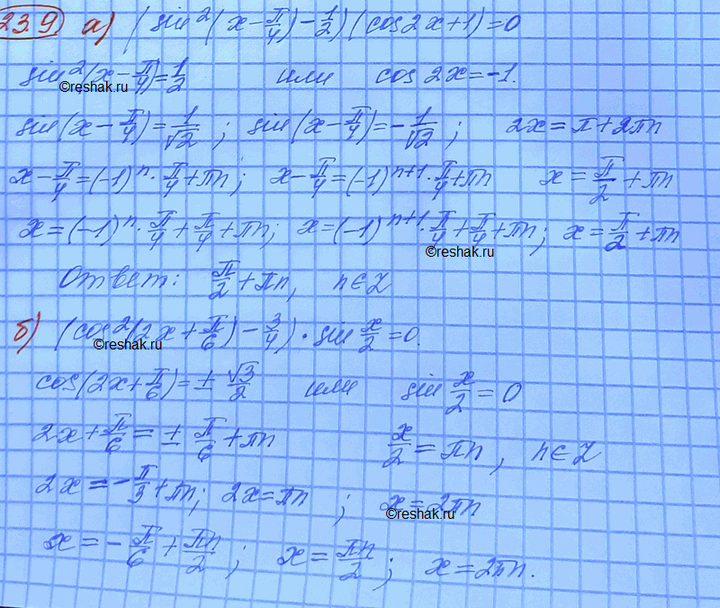 23.9 а) (sin²(x-π/4)-1/2)(cos2x+1)=0
sin²(x-π/4)=1/2 или cos2x=-1.
©reshak.ru
sin(x-π/4)=1/√2; sin(x-π/4)=-1/√2; 2x=π+2πn
x-π/4=(-1)ⁿ·π/4+πn; x-π/4=(-1)ⁿ⁺¹·π/4+πn x=π/2+πn
x=(-1)ⁿ·π/4+π/4+πn; x=(-1)ⁿ⁺¹·π/4+π/4+πn; x=π/2+πn
©reshak.ru
Ответ: π/2+πn, n∈Z
б) (cos²(2x+π/6)-3/4)·sin x/2=0.
©reshak.ru
cos(2x+π/6)=±√3/2 или sin x/2=0
2x+π/6=±π/6+πn x/2=πn, n∈Z
2x=-π/3+πn; 2x=πn; x=2πn
©reshak.ru
x=-π/6+πn/2; x=πn/2; x=2πn.